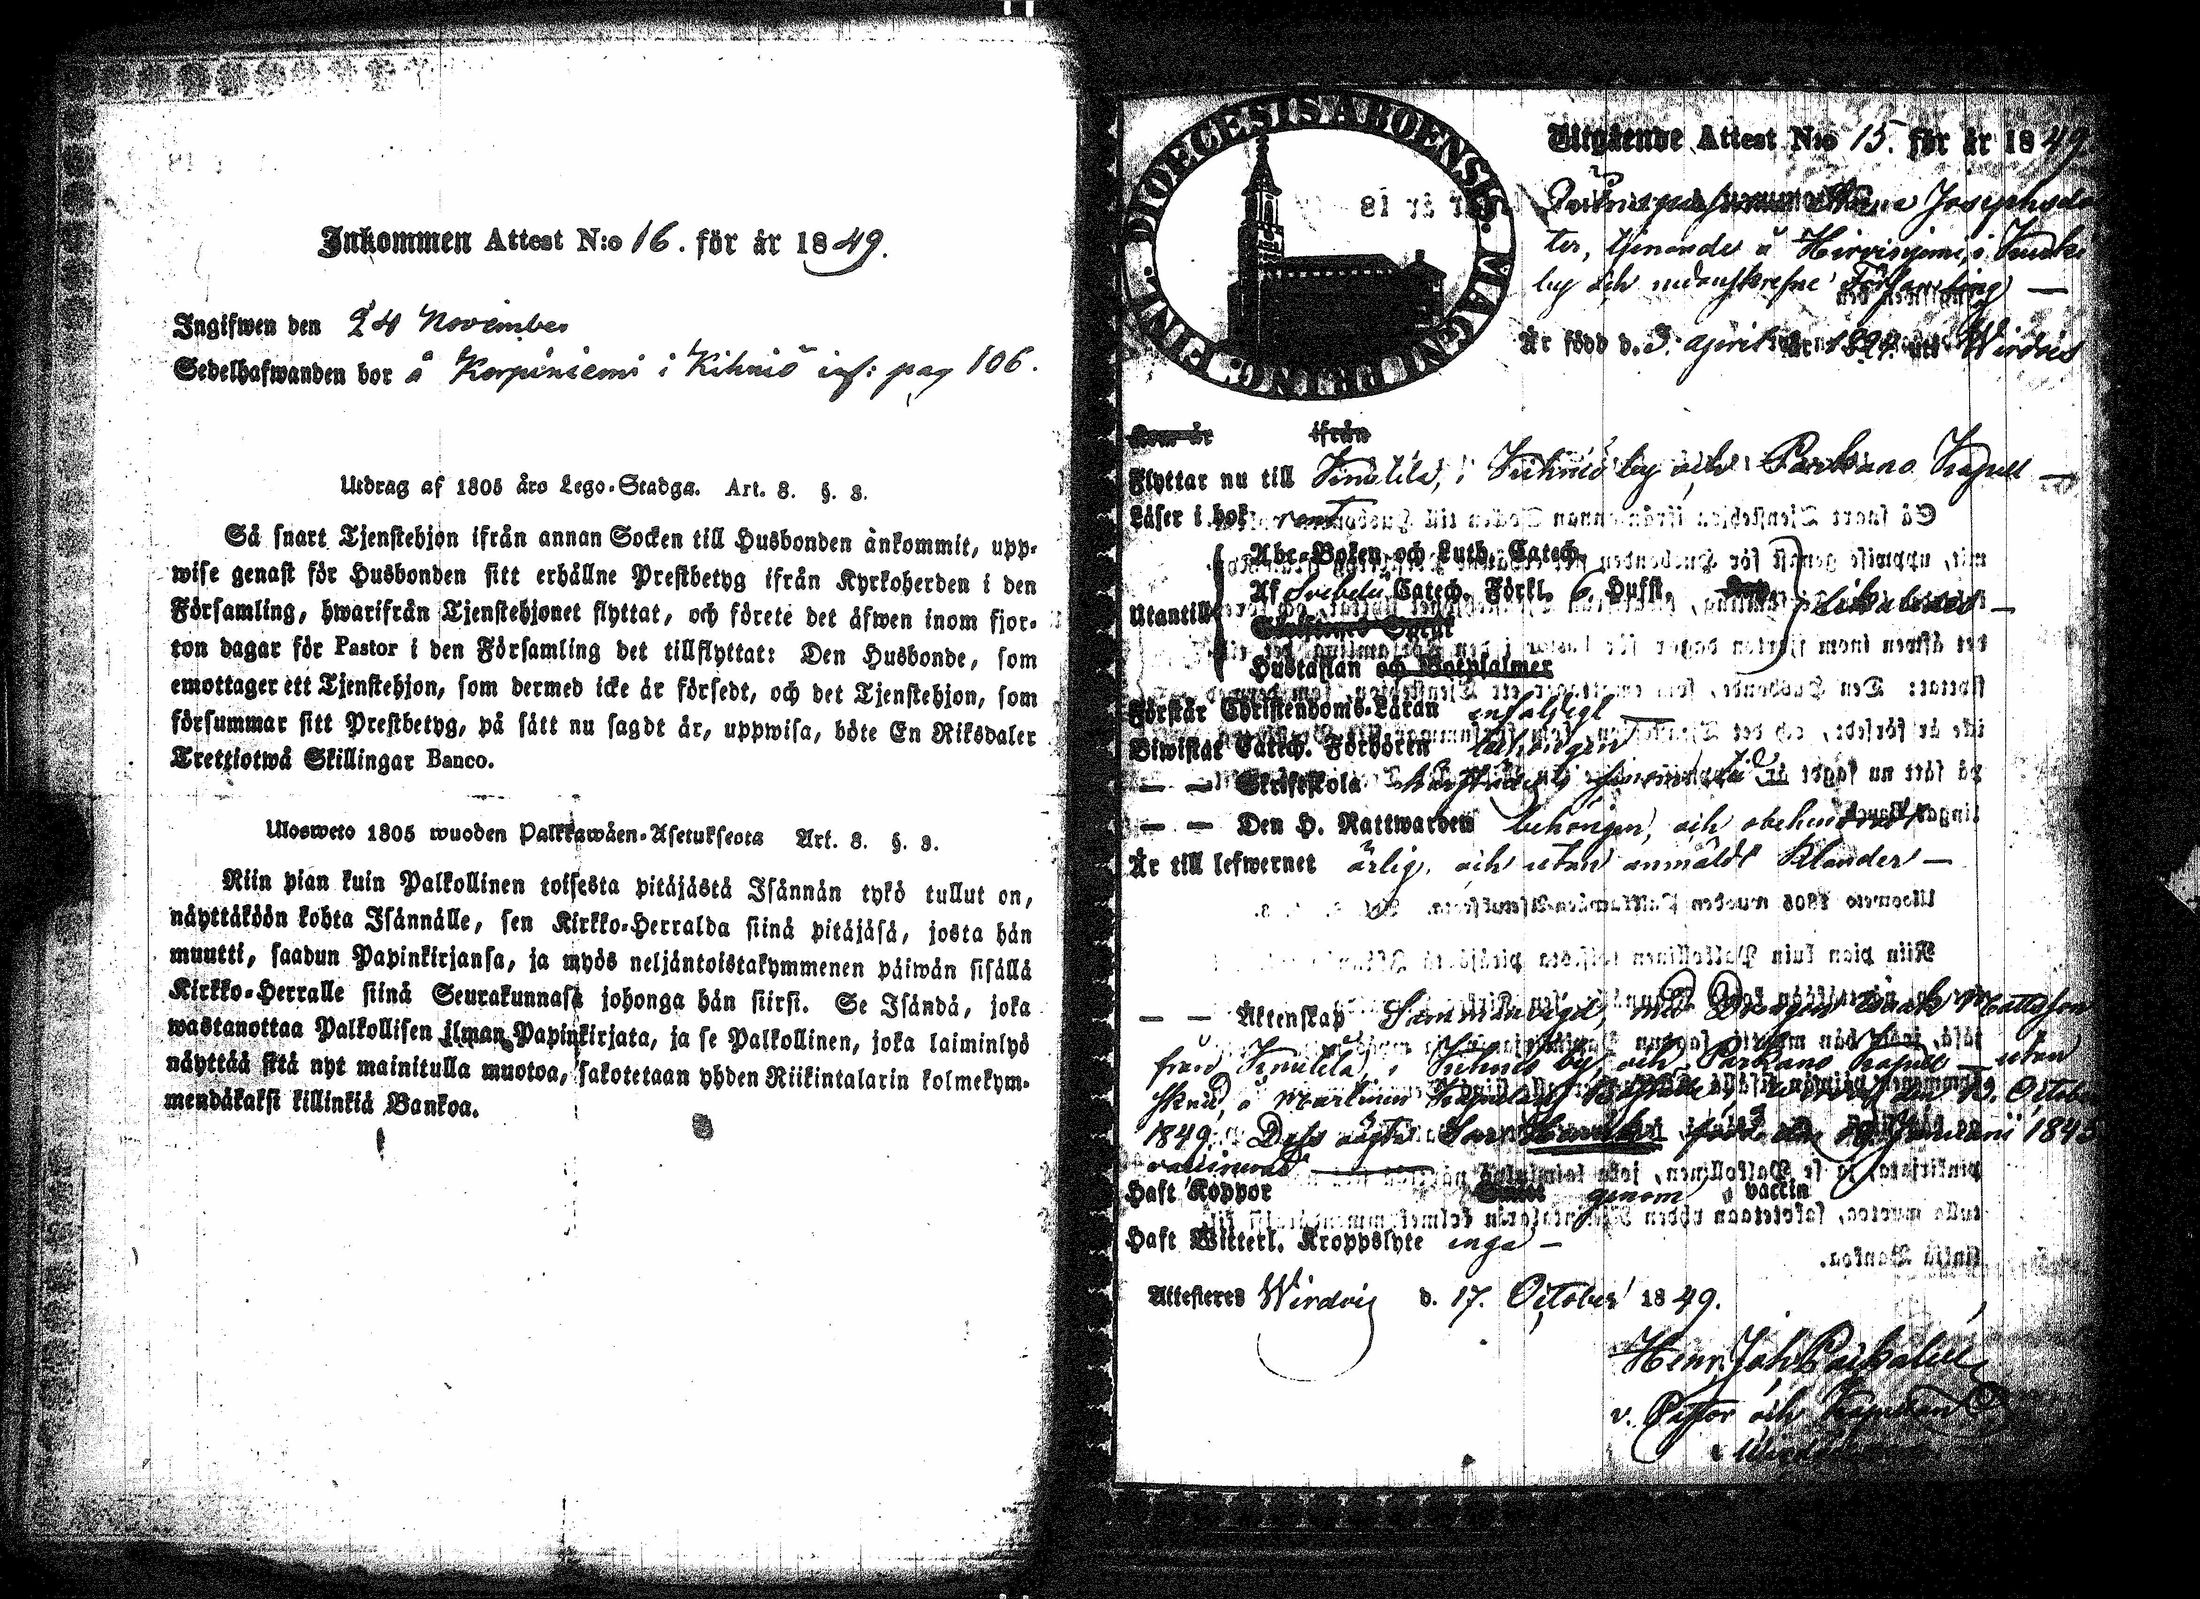 Inkommen Attest N:o 16. för år 1849.
Ingifwen den 24 November
Sedelhafwanden bor å Korpiniemi i Kihniö inf: pag 106.
Utdrag af 1805 års Lego-Stadga. Art. 8. §. 3.
Så snart Tjenstehjon ifrån annan Socken till Husbonden ankommit, upp-
wise genast för Husbonden sitt erhållne Prestbetyg ifrån Kyrkoherden i den
Församling, hwarifrån Tjenstehjonet flyttat, och förete det äfwen inom fjor-
ton dagar för Pastor i den Församling det tillflyttat: Den Husbonde, som
emottager ett Tjenstehjon, som dermed icke är försedt, och det Tjenstehjon, som
försummar sitt Prestbetyg, på sätt nu sagdt är, uppwisa, böte En Riksdaler
Trettiotwå Skillingar Banco.
Ulosweto 1805 wuoden Palkkawäen-Asetuksesta Art. 8. §. 3.
Niin pian kuin Palkollinen toisesta pitäjästä Isännän tykö tullut on,
näyttäköön kohta Isännälle, sen Kirkko-Herralda siinä pitäjäsä, josta hän
muutti, saadun Papinkirjansa, ja myös neljäntoistakymmenen päiwän sisällä
Kirkko-Herralle siinä Seurakunnasa johonga hän siirsi. Se Isändä, joka
wastanottaa Palkollisen ilman Papinkirjata, ja se Palkollinen, joka laiminlyö
näyttää sitä nyt mainitulla muotoa, sakotetaan yhden Riikintalarin kolmekym-
mendäkaksi killinkiä Bankoa.
DIOECESIS ABOENSIS. MAGNI PRINC. FINL.
Utgående Attest N:o 15. för år 1849
Josephsdo
ter, tjenande å Hirviniemi, i
by och nedanskrefne Församling —
Är född d. 3. april Wirdois
Kom år ifrån
Flyttar nu till Kihniö by och Parkano Kapell —
Läser i bok rent
Abc-Boken och Luth. Catech.
Utantill Af Svebelii Catech. Förkl. 6 Hufst.
Hustaflan och Botpsalmer
Förstår Christendoms-Läran enfaldigt
Biwistat Catech. Förhören behörigen
— — Skriftskola
— — Den H. Nattwarden behörigen, och obehindrat
Är till lefwernet ärlig, och utan anmäldt klander —
— — Äktenskap Sammanvigd, med Drängen Isaak Mattsson
från i Kihniö by, och Parkano kapell utan
October
1849. Dess Januari 1843
vaccinerad
Haft Koppor genom vaccin
Haft Witterl. Kroppslyte inga —
Attesteras Wirdois d. 17. October 1849.
Henr. Joh.
v. Pastor och Kapellan